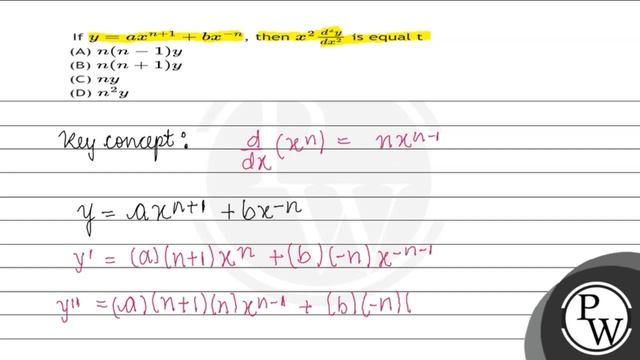 If y = ax^{n+1} + bx^{-n}, then x^2 \frac{d^2y}{dx^2} is equal t
(A) n(n − 1)y
(B) n(n + 1)y
(C) ny
(D) n^2y
Key concept: \frac{d}{dx}(x^n) = nx^{n-1}
y = ax^{n+1} + bx^{-n}
y' = (a)(n+1)x^n + (b)(-n)x^{-n-1}
y'' = (a)(n+1)(n)x^{n-1} + (b)(-n)(
P
W
P
W